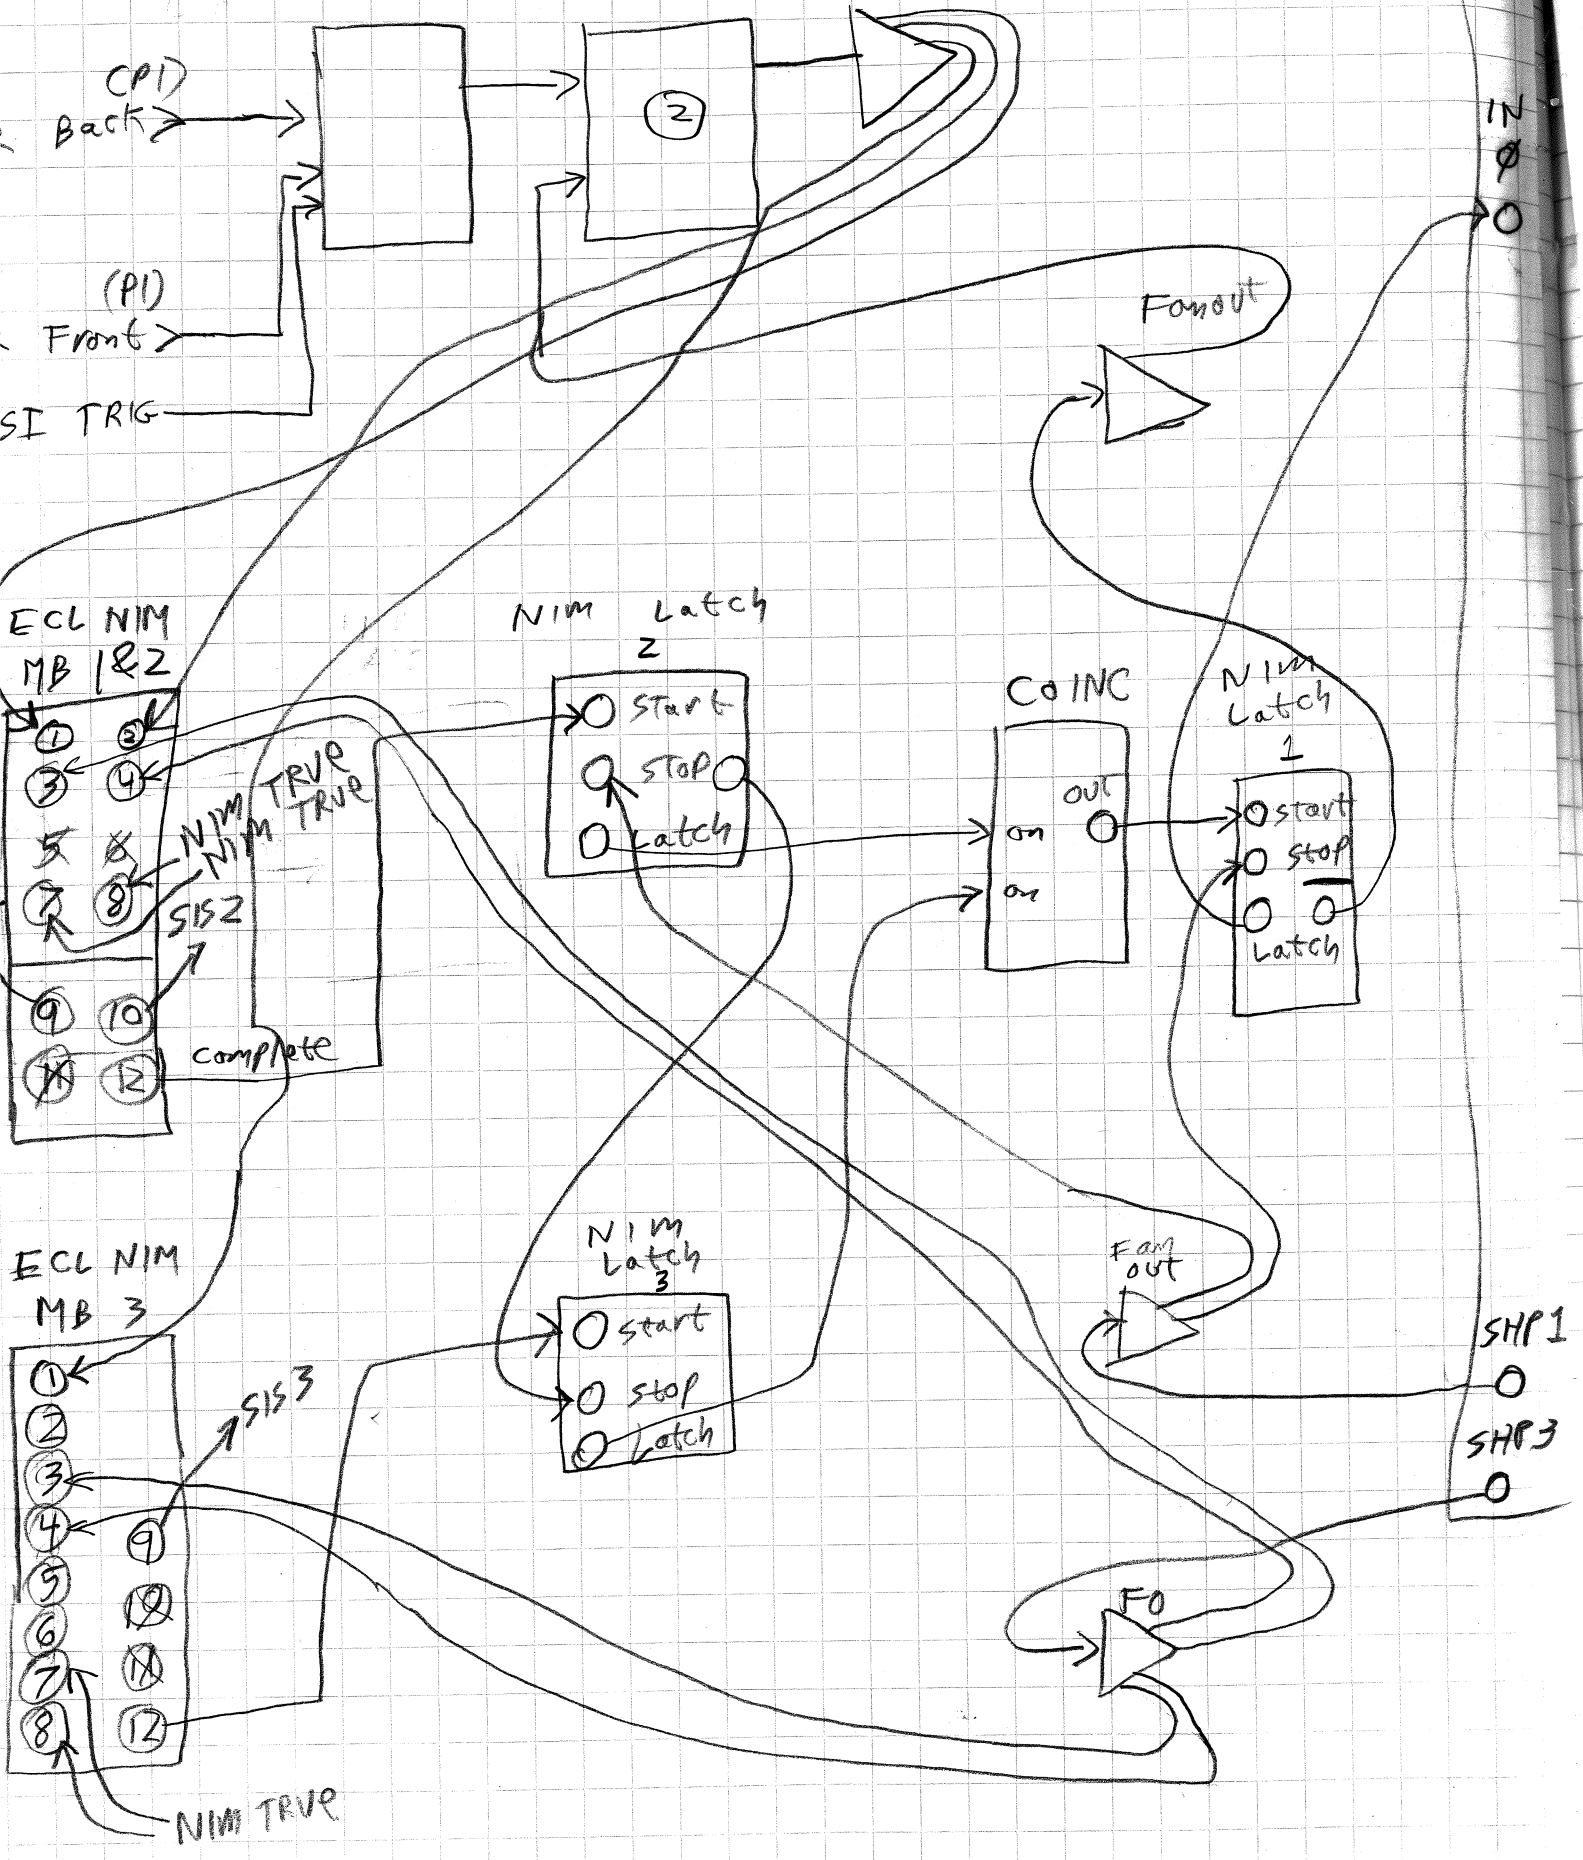 (P1)
Back
2
IN
Ø
(P1)
Front
Fanout
SI TRIG
ECL NIM
MB 1&2
1 2
3 4
5 6
7 8
9 10
11 12
NIM TRUE
NIM TRUE
SIS2
Complete
NIM Latch
2
Start
Stop
Latch
COINC
out
on
on
NIM
Latch
1
Start
Stop
Latch
ECL NIM
MB 3
1
2
3
4
5
6
7
8
9
10
11
12
SIS3
NIM TRUE
NIM
Latch
3
Start
Stop
Latch
Fan
out
SHP1
SHP3
FO